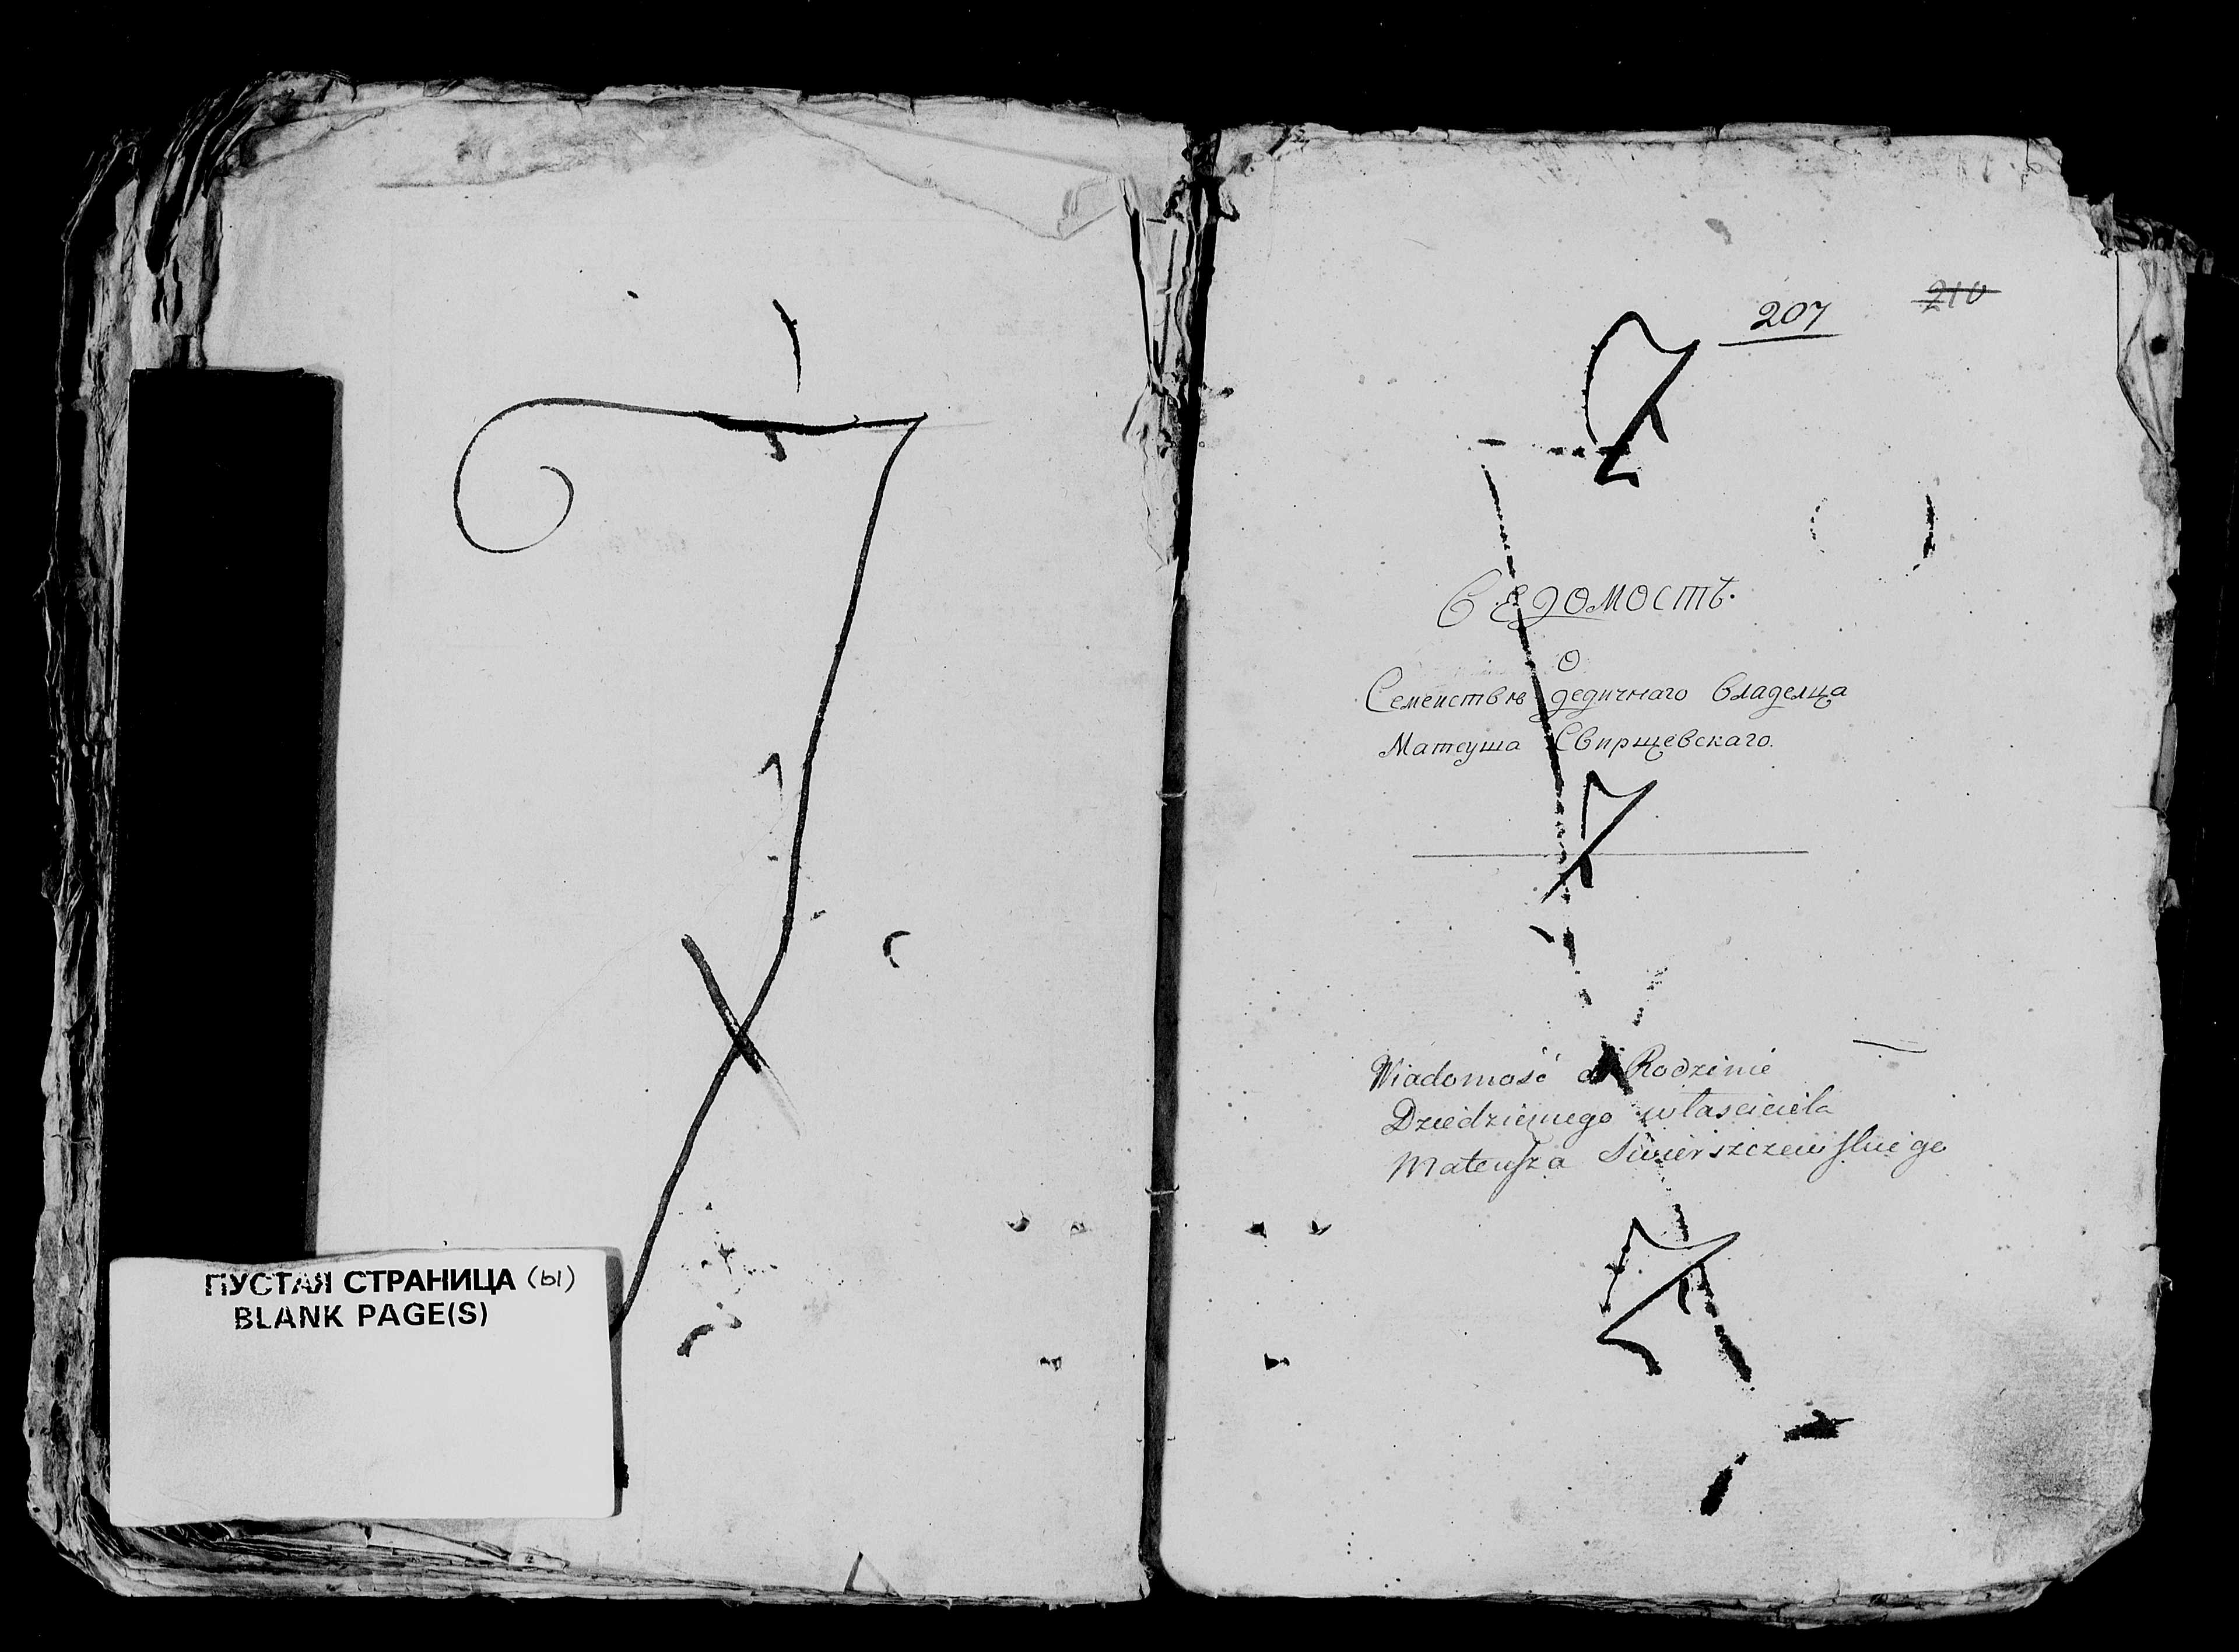 ПУСТАЯ СТРАНИЦА (ы)
BLANK PAGE(S)
207 210
Ведомость.
О
Семействѣ дедичнаго владелца
Матеуша Свирщевскаго.
Wiadomość o Rodzinie
Dziedzicznego własciciela
Mateusza Swierszczewskiego